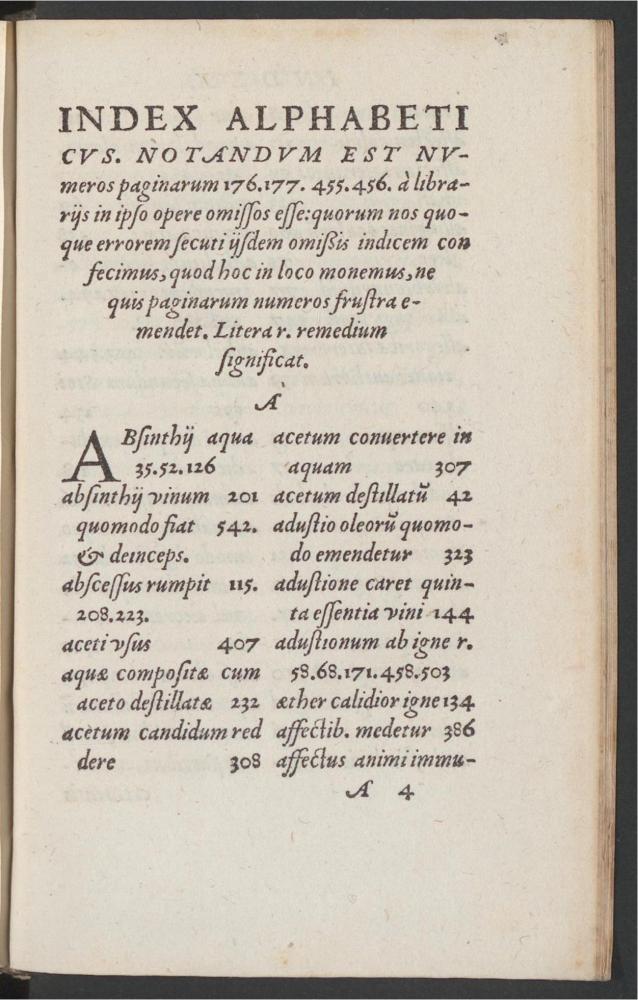 INDEX ALPHABETI
CVS. NOTANDVM EST NV-
meros paginarum 176.177. 455.456. à libra-
rijs in ipſo opere omiſſos eſſe: quorum nos quo-
que errorem ſecuti ijſdem omiſsis indicem con
fecimus, quod hoc in loco monemus, ne
quis paginarum numeros fruſtra e-
mendet. Litera r. remedium
ſignificat.
A
ABſinthij aqua
35.52.126
abſinthij vinum 201
quomodo fiat 542.
& deinceps.
abſceſſus rumpit 115.
208.223.
aceti vſus 407
aquæ compoſitæ cum
aceto deſtillatæ 232
acetum candidum red
dere 308
acetum conuertere in
aquam 307
acetum deſtillatũ 42
aduſtio oleorũ quomo-
do emendetur 323
aduſtione caret quin-
ta eſſentia vini 144
aduſtionum ab igne r.
58.68.171.458.503
æther calidior igne 134
affectib. medetur 386
affectus animi immu-
A 4